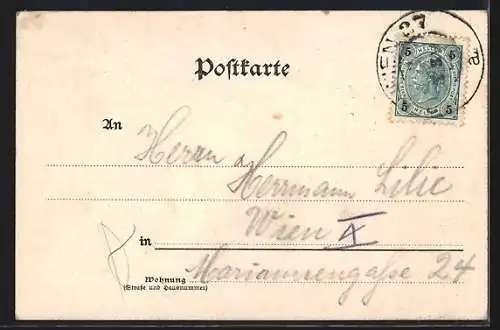 WIEN 27
5 5
Postkarte
5 5
An
Herrn
Herrmann Lilie
Wien X
in
Mariannengasse 24
Wohnung
(Straße und Hausnummer)